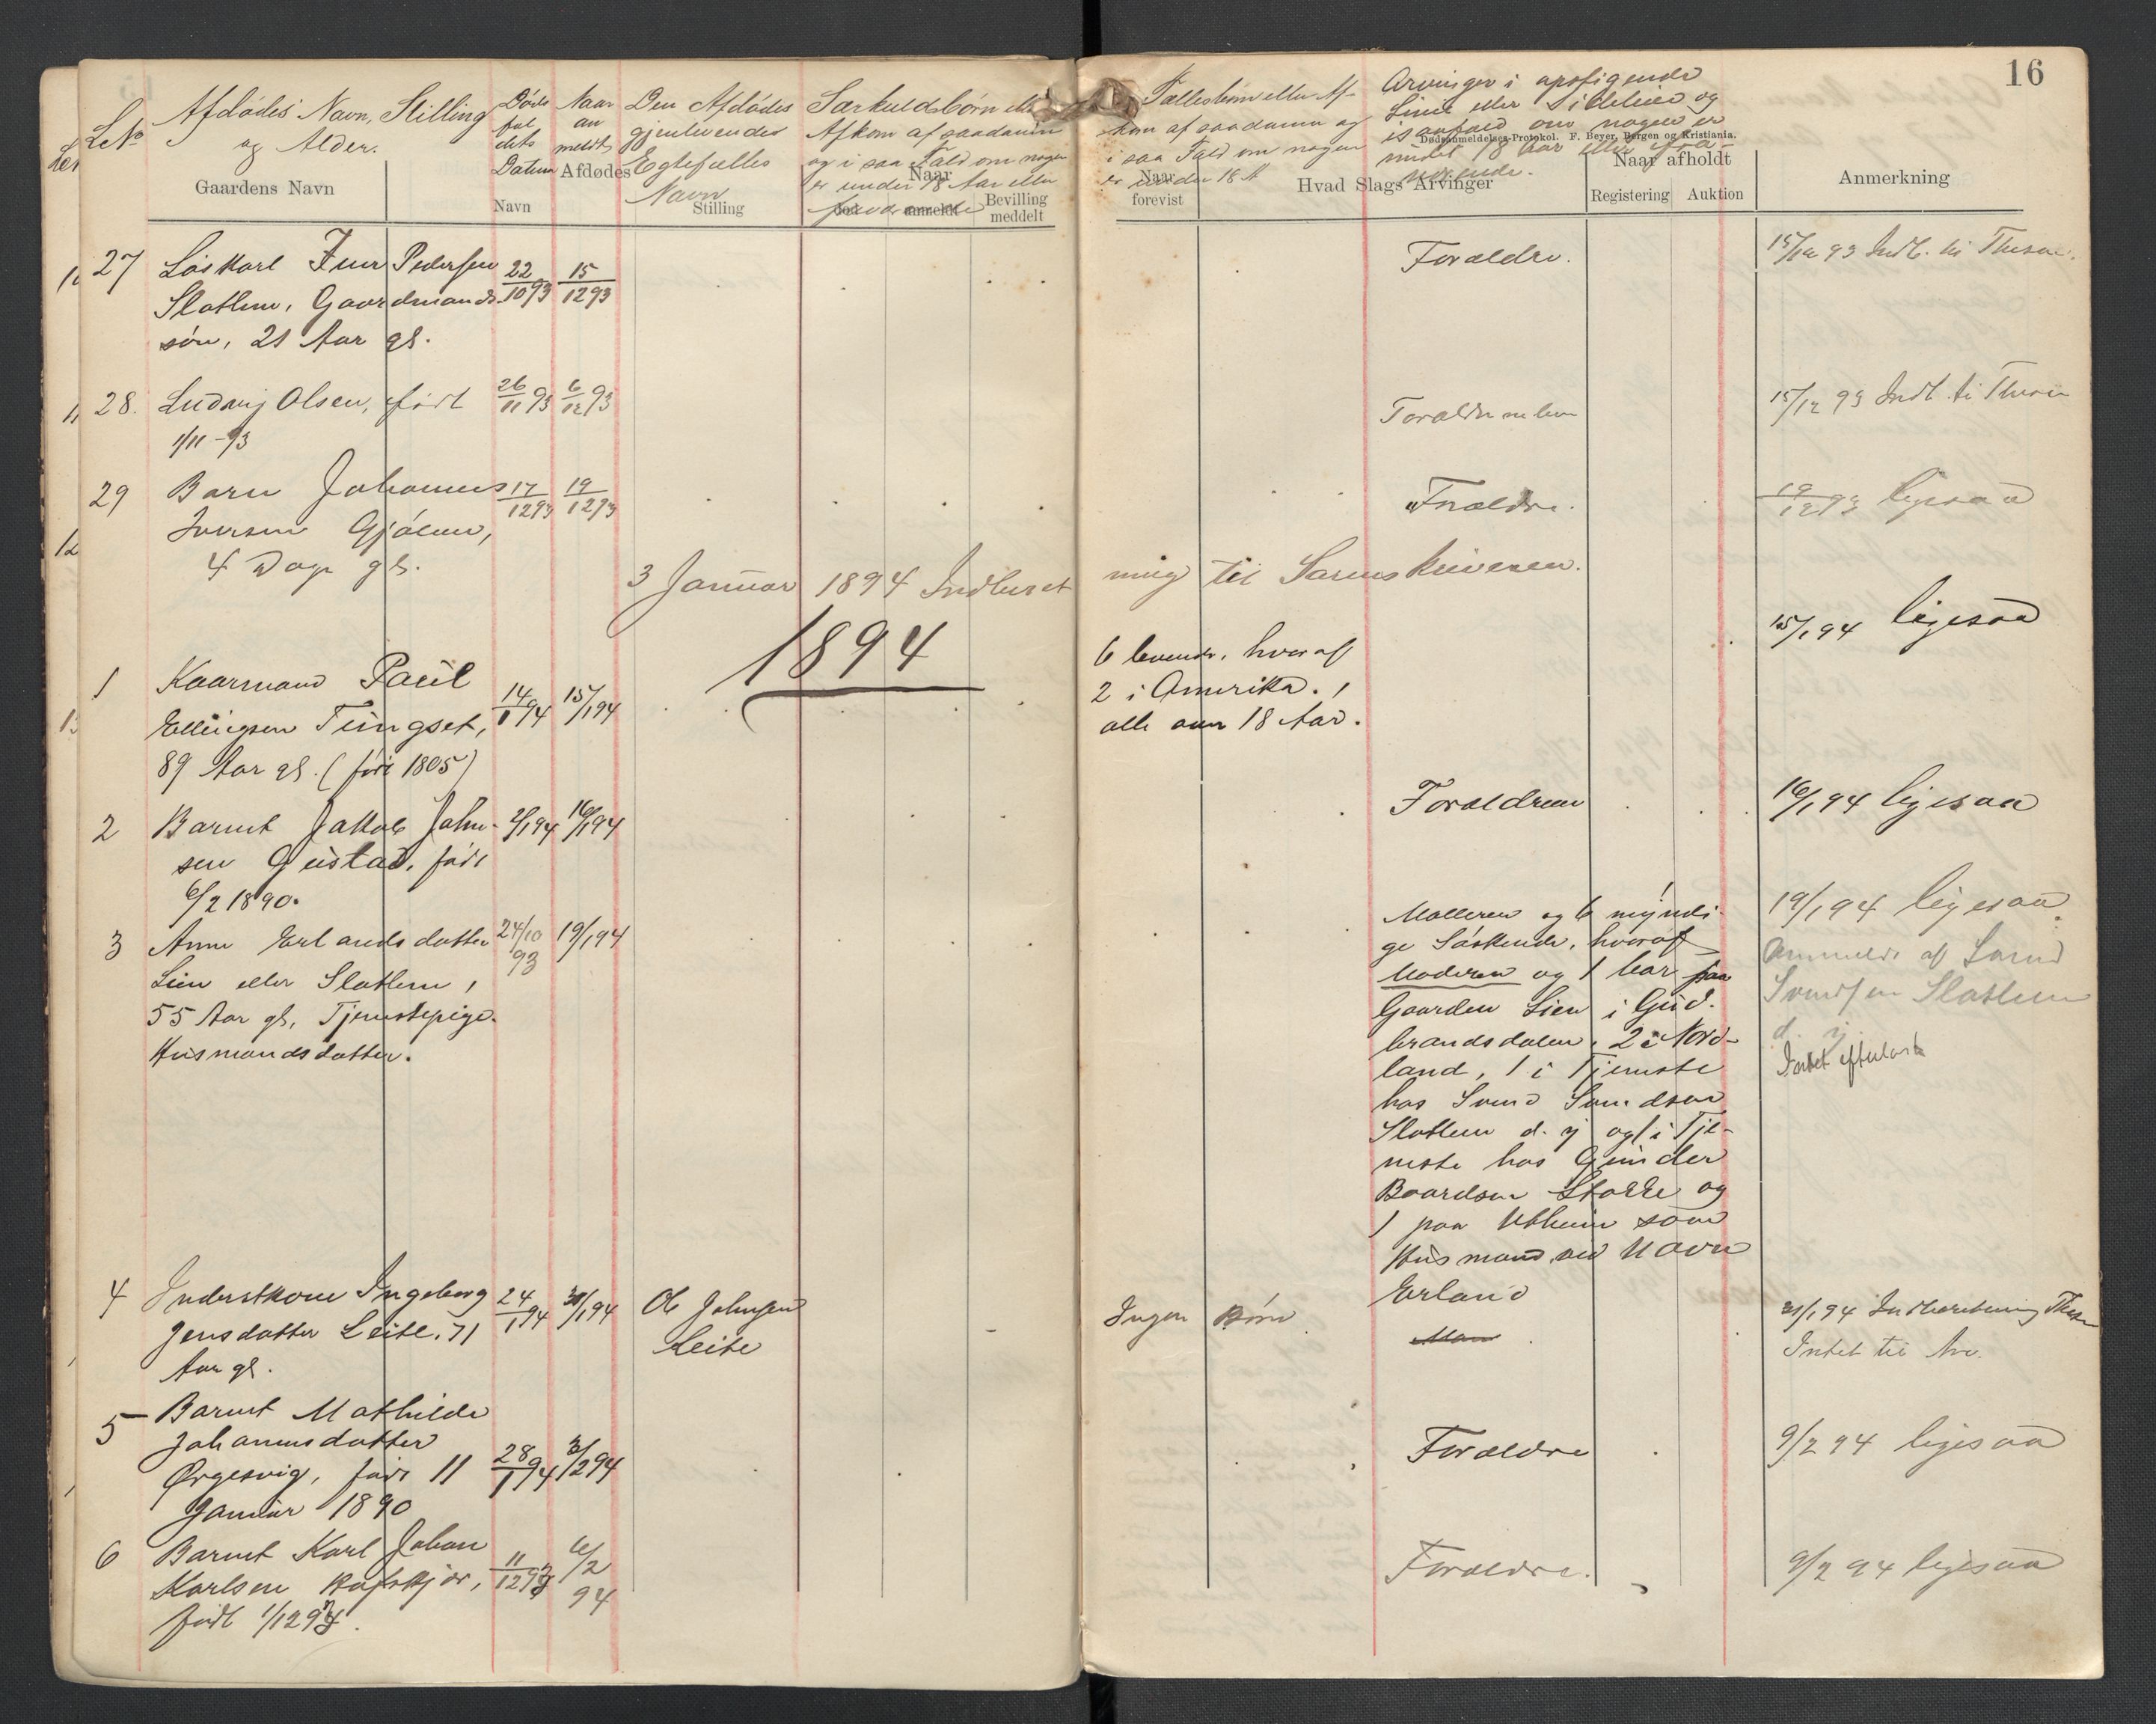 16
Afdødes Navn, Stilling
og Alder.
LNo
Døds
fal
dets
Datum
Naar
an
meldt
Den Afdødes
gjenlevendes
Egtefælles
Navn
Særkuldsbørn eller
Afkom af saadanne
og i saa Fald om nogen
er under 18 Aar eller
Fællesbørn eller Af-
kom af saadanne og
i saa Fald om nogen
er under 18 A
Arvinger i opstigende
Linie eller Sidelinie og
i saafald om nogen er
under 18 Aar eller fra-
værende.
Dødsanmeldelses-Protokol. F. Beyer, Bergen og Kristiania.
Gaardens Navn
Afdødes
Navn
Stilling
Naar
død
anmeldt
Bevilling
meddelt
Naar
forevist
Hvad Slags Arvinger
Naar afholdt
Registering
Auktion
Anmerkning
27 Løskarl Iver Pedersen 22/10 93 15/12 93
Slatlem, Gaardmands-
søn, 21 Aar gl.
Forældre.
15/12 93 Indb. til Thesen.
28. Ludvig Olsen, født 26/11 93 6/12 93
1/11-93
Forældrene
15/12 93 Indb. til Thesen
29 Barn Johannes 17/12 93 19/12 93
Iversen Gjølme,
4 Dage gl.
Forældre.
19/12 93 ligesaa
3 Januar 1894 Indberet
ning til Sorenskriveren.
1894
1 Kaarmand Paul 14/1 94 15/1 94
Ellingsen Tungset,
89 Aar gl. (født 1805)
6 levende, hvoraf
2 i Amerika.,
alle over 18 Aar.
15/1 94 ligesaa
2 Barnet Jakob John- 2/1 94 16/1 94
sen Gustad, født
6/2 1890.
Forældrene
16/1 94 ligesaa
3 Anne Erlandsdatter 24/10 93 19/1 94
Lien eller Slatlem,
55 Aar gl, Tjenestepige.
Husmandsdatter.
Moderen og 6 myndi-
ge Søskende, hvoraf
Moderen og 1 bor paa
Gaarden Lien i Gud-
brandsdalen, 2 i Nord-
land, 1 i Tjeneste
hos Svend Svendsen
Slatlem d. y og 1 i Tje-
neste hos Gunder
Baardsen Stokke og
1 paa som
Husmand ved Navn
Erland
19/1 94 ligesaa
Anmeldt af Svend
Svendsen Slatlem
d. y.
Intet efterladt
4 Inderstkone Ingeborg 24/1 94 31/1 94
Jensdatter Leite, 71
Aar gl.
Ole Johnsen
Leite
Ingen Børn
Man
31/1 94 Indberetning Thesen
Intet til Arv.
5 Barnet Mathilde
Johannesdatter
Ørgesvig, født 11 28/1 94 3/2 94
Januar 1890
Forældre
9/2 94 ligesaa
6 Barnet Karl Johan
Karlsen, 11/12 93 6/2 94
født 1/12 93.
Forældre.
9/2 94 ligesaa